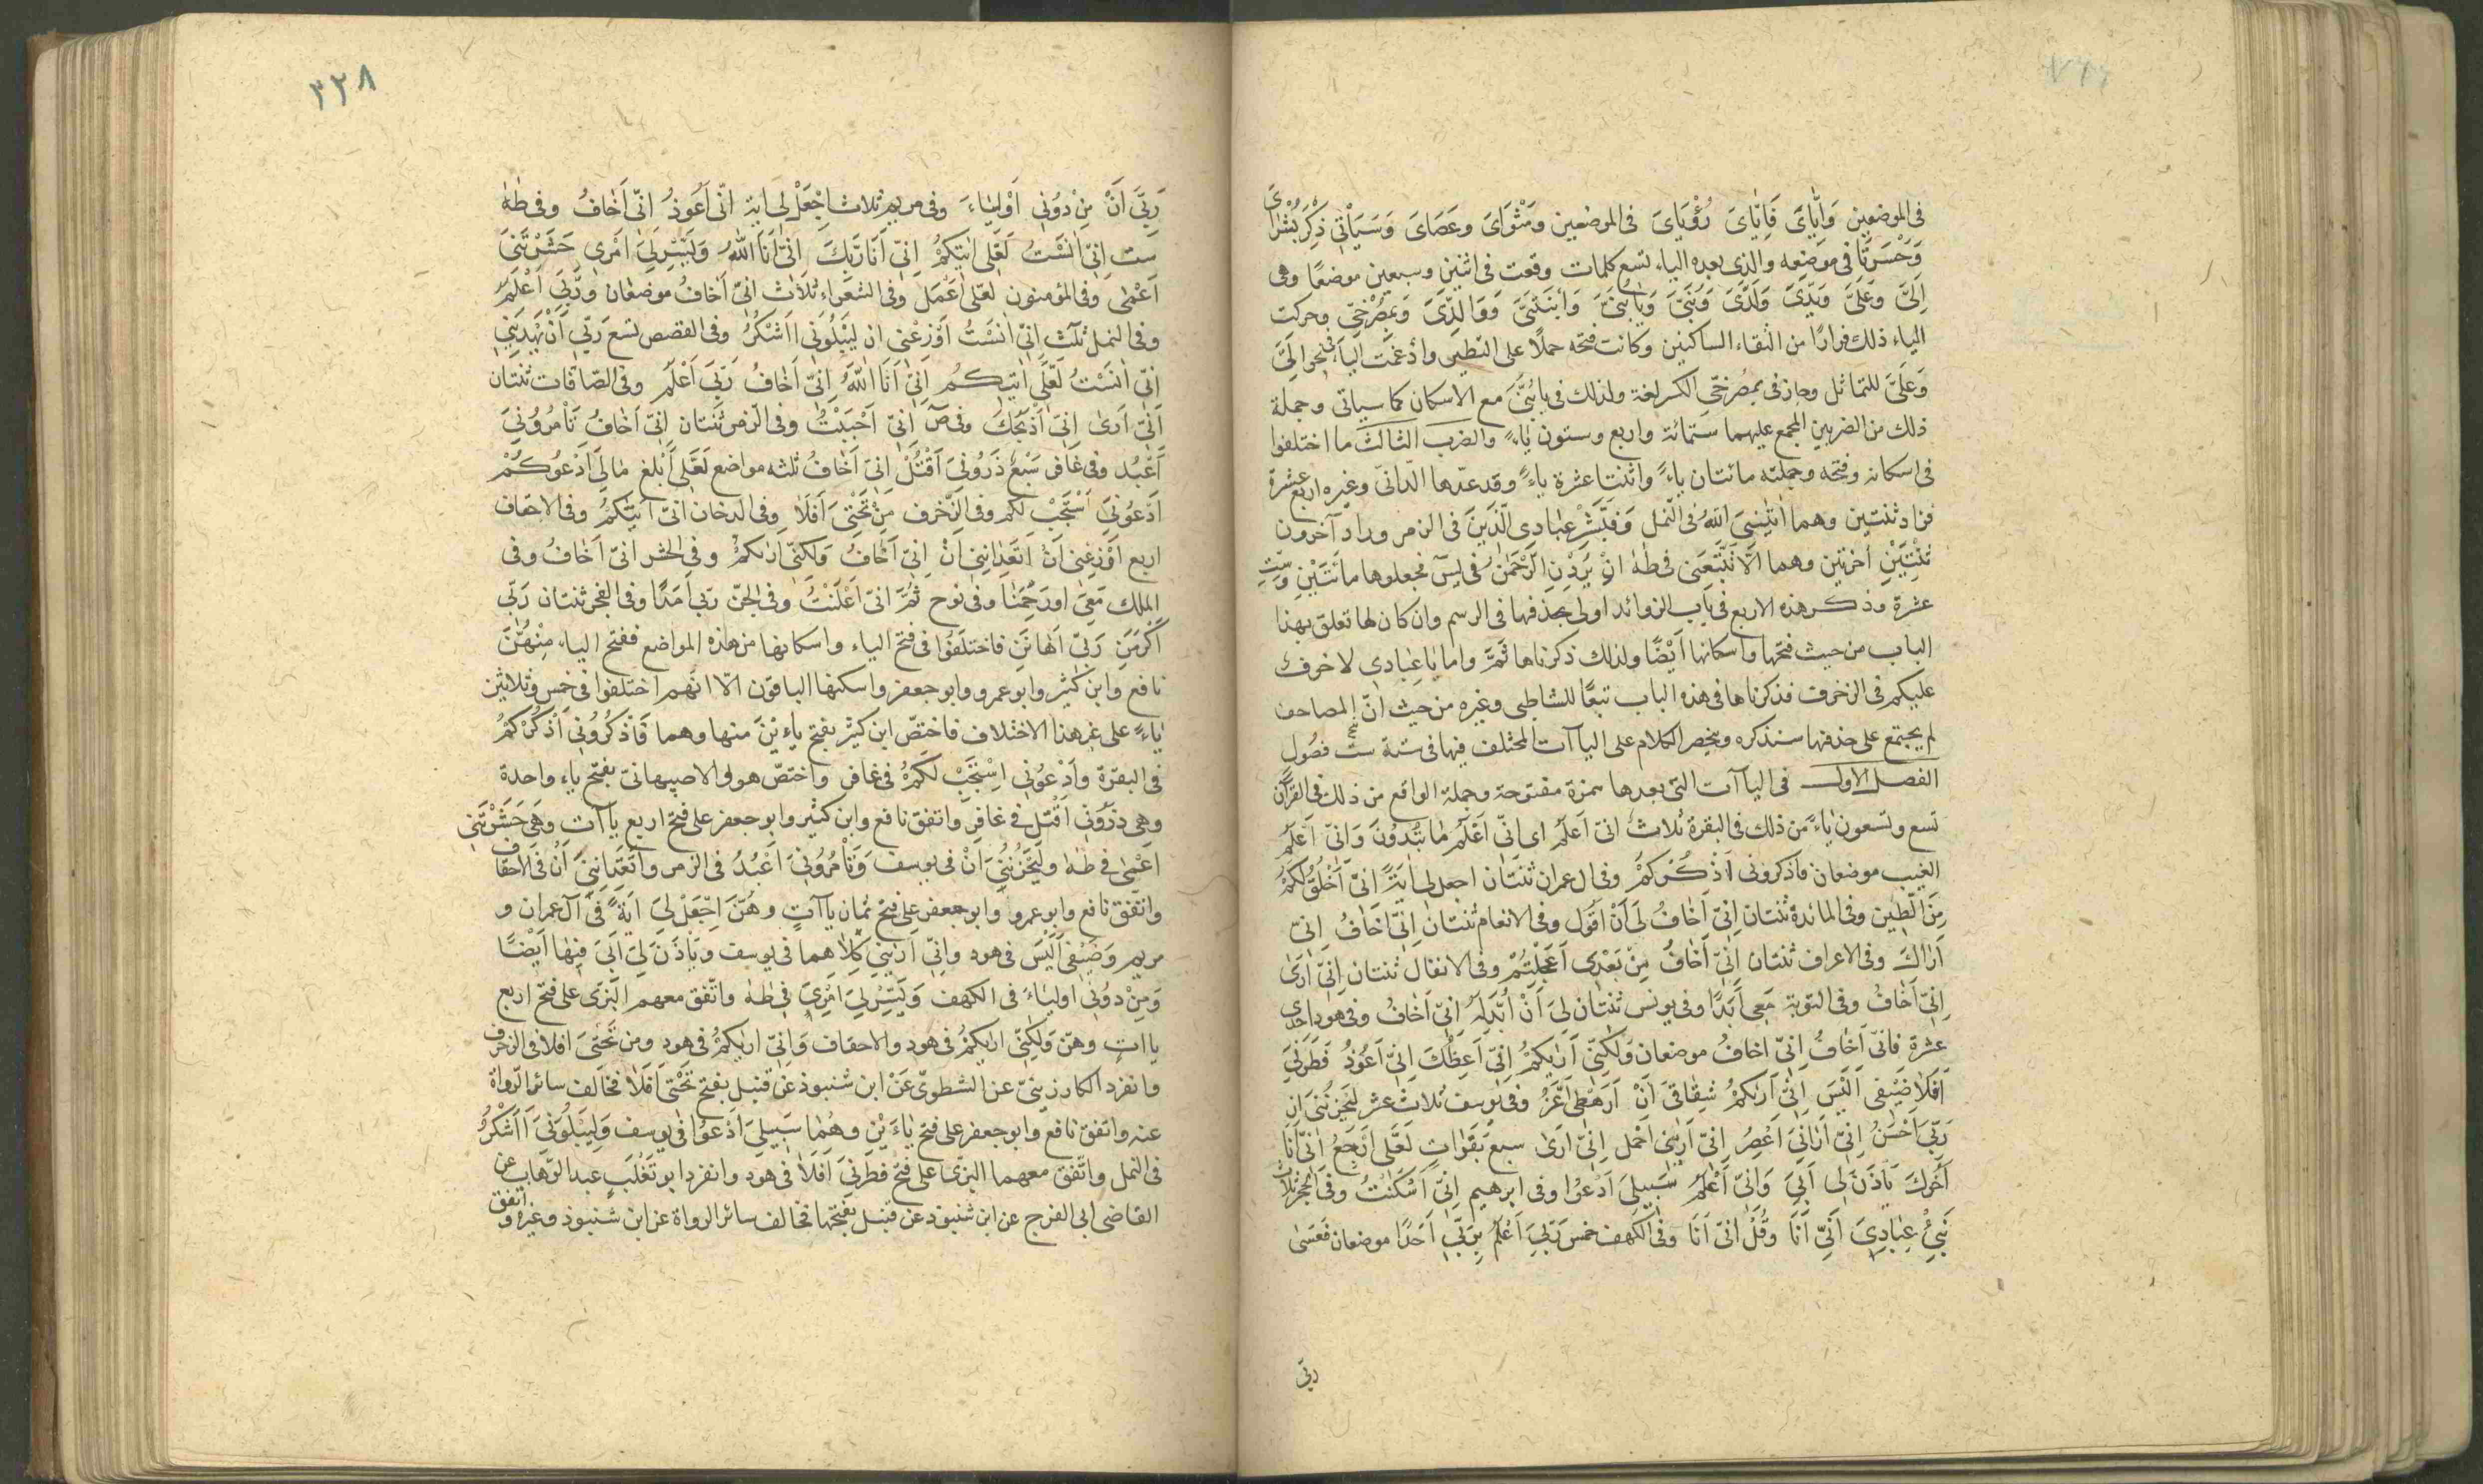 في الموضعين وَايَّايَ فَاِيّايَ رُؤْيَايَ في الموضعين ومَثْوَايَ وعَصَايَ وَسَيَأْتِي ذِكْرُ بُشْرَايَ
وَحَسْرَتَا في موضعه والذي بعده الياء تسع كلمات وقعت في اثنين وسبعين موضعًا وهي
اِلَىَّ وَعَلَىَّ وَيَدَىَّ وَلَدَىَّ وَبَنِىَّ وَيَابُنَىَّ وَابْنَتَىَّ وَوَالِدَىَّ وَبِمُصْرِخِىَّ وحركت
الياء ذلك فرارًا من التقاء الساكنين وكانت فتحه حملاً على النظير وادغمت الياء في نحو الىَّ
وَعَلَىَّ للتماثل وجاز في بِمُصْرِخِيِّ الكسر لغة ولذلك في يابُنَىَّ مع الاسكان كما سياتي وجملة
ذلك من الضربين المجمع عليهما ستمائة واربع وستون ياءً والضرب الثالث ما اختلفوا
في اسكانه وفتحه وجملته مائتان ياءً واثنتا عشرة ياءً وقد عدّها الدّانىّ وغيره اربع عشرة
فزاد ثنتين وهما اٰتٰنِىَ اللّٰهُ في النّمل وَفَبَشِّرْ عِبَادِى الَّذِينَ في الزمر وزاد آخرون
ثنتين اخرتين وهما اَلّا تَتَّبِعَنِ في طٰهٰ اِنْ يُرِدْنِ الرَّحْمٰنُ في يسٓ فجعلوها مائتين وستِ
عشرة وذكر هذه الاربع في باب الزوائد اولى بحذفها في الرسم وان كان لها تعلق بهذا
الباب من حيث فتحها واسكانها اَيْضًا ولذلك ذكرناها ثَمَّ واما يَا عِبَادِى لا خوف
عليكم في الزخرف فذكرناها في هذه الباب تبعًا للشاطبى وغيره من حيث انّ المصاحف
لم يجتمع على حذفها سنذكره وينحصر الكلام على الياآت المختلف فيها في ستة فصُول
الفصل الاول في الياآت التي بعدها همزة مفتوحة وجملة الواقع من ذلك في القرآن
تسع وتسعون ياءً من ذلك في البقرة ثلاثٌ انىّ اَعلم اى انّى اَعْلَمُ مَا تُبْدُونَ وَانّىّ اَعْلَمُ
الغيب موضعان فاذكروني اَذْكُرْكُمْ وفي ال عمران ثنتَان اجعل لى اٰيَةً انّى اَخْلُقُ لَكُمْ
مِنَ الطِّين وفي المائدة ثنتان اِنّى اَخَافُ لى اَنْ اَقُول وفي الانعام ثنتان اِنّى اَخَافُ انّى
اَرَاكَ وفي الاعراف ثنتان اِنّى اَخَافُ مِنْ بَعْدِى اَعَجِلْتُمْ وفي الانفال ثنتان اِنّى اَرَىٰ
اِنّى اَخَافُ وفي التوبة مَعِى اَبَدًا وفي يونس ثنتان لِىَ اَنْ اُبَدِّلَهُ اِنّى اَخَافُ وفي هود احدى
عشرة فانّى اَخَافُ اِنّى اخافُ موضعان وَلٰكِنّى اَرٰيكُمْ اِنّى اَعِظُكَ اِنّى اَعُوذُ فَطَرَنِىَ
اَفَلَا ضَيْفِى اَلَيْسَ اِنّى اَرٰيكُمْ شِقَاقِىَ اَنْ اَرَهْطِى اَعَزُّ وفي يوسف ثلاث عشر لَيَحْزُنُنِىَ ان
رَبّىَ اَحْسَنُ اِنّى اَرَانِىَ اَعْصِرُ اِنّى اَرٰينى اَحْمِل اِنّى اَرَىٰ سبع بَقَرَاتٍ لَعَلِّى اَرْجِعُ اِنّى اَنَا
اَخُوكَ يَاْذَنَ لى اَبِى وَانّى اَعْلَمُ سَبِيلى اَدْعُوا وفي ابرهيم اِنّى اَسْكَنْتُ وفي الحجر ثلاث
نَبِّئْ عِبَادِىَ اَنّى اَنَا وَقُلْ اِنّى اَنَا وفي الكهف خمس رَبّى اَعْلَمُ بِرَبّى اَحَدًا موضعان فَعَسَىٰ
ربّى
٣٢٨
رَبّىَ اَنْ مِنْ دُونِى اَوْلِيَاءَ وفي مريم ثلاث اِجْعَلْ لى اية انّى اَعُوذُ انّى اَخَافُ وفي طٰهٰ
ست اِنّى اٰنَسْتُ لَعَلِّى اٰتِيكُمْ اِنّى اَنَا رَبُّكَ اِنّنى اَنَا اللّٰهُ وَيَسِّرْ لِىَ اَمْرِى حَشَرْتَنِىَ
اَعْمٰى وفي المؤمنون لعلّى اَعْمَلُ وفي الشعراء ثلاث انّى اَخَافُ موضعان وَرَبّى اَعْلَمُ
وفي النمل ثلٰث اِنّى اٰنَسْتُ اَوْزِعْنى ان لِيَبْلُوَنى اَاَشْكُرُ وفي القصص تسع رَبّى اَنْ يَهْدِيَنِى
اِنّى اٰنَسْتُ لَعَلِّى اٰتِيكُمْ اِنّى اَنَا اللّٰهُ اِنّى اَخَافُ رَبّىَ اَعْلَم وفي الصّافات ثنتان
اَنّى اَرىٰ انّى اَذْبَحُكَ وفي صٓ انّى اَحْبَبْتُ وفي الزمر ثنتان اِنّى اَخَافُ تَاْمُرُونِىَ
اَعْبُد وفي غافر سَبْعٌ ذَرُونِىَ اَقْتُلْ اِنّى اَخَافُ ثلثه مواضع لَعَلِّى اَبْلغ مَا لِىَ اَدْعُوكُمْ
اُدْعُونِىَ اَسْتَجِبْ لكم وفي الزّخرف مِنْ تَحْتِىَ اَفَلَا وفي الدخان انّى اٰتِيكُمْ وفي الاحقاف
اربع اَوْزِعْنِى اَنْ اَتَعِدَانِنِى اَنْ اِنّى اَخَافُ وَلكنّى اَرٰيكُمْ وفي الحشر انّى اَخَافُ وفي
الملك مَعِىَ اورَحِمَنَا وفي نوح ثُمَّ انّى اَعْلَنْتُ وفي الجنّ رَبّى اَمَدًا وفي الفجر ثنتان رَبّى
اَكْرَمَنِ رَبّى اَهَانَنِ فاختلَفُوا في فتح الياء واسكانها من هذه المواضع ففتح الياء مِنْهُنَّ
نافع وابن كثير وابو عمرو وابو جعفر واسكنها الباقون الّا انّهم اختلفوا في خمس وثلاثين
ياءً على غير هذا الاختلاف فاختصّ ابن كثير بفتح ياءين منها وهما فَاذْكُرُونِى اَذْكُرْكُمْ
في البقرة وَادْعُونِى اَسْتَجِبْ لَكُمْ في غافر واختصّ هو والاصبهانىّ بفتح ياء واحدة
وهي ذَرُونِى اَقْتُل في غافر واتفق نافع وابن كثير وابو جعفر على فتح اربع ياآت وَهِىَ حَشَرْتَنِى
اَعْمٰى في طٰهٰ ولَيَحْزُنُنِىَ اَنْ في يوسف وَتَاْمُرُونِىَ اَعْبُدُ في الزمر وَاَتَعِدَانِنِىَ اَنْ في الاحقاف
واتفق نافع وابو عمرو وابو جعفر على فتح ثمان ياآتٍ وهُنَّ اجْعَلْ لِىَ اٰيَةً في آل عمران و
مريم وَضَيْفِى اَلَيْسَ في هود وانّى اَرٰينى كِلَاهما في يوسف ويَاْذَنَ لِىَ اَبِىَ فيها اَيْضًا
وَمِنْ دُونِى اولياءَ في الكهف وَيَسِّرْ لِىَ اَمْرِىَ في طٰهٰ واتّفق معهم البزى على فتح اربع
ياات وهنّ وَلٰكِنّى اَرٰيكُمْ في هود والاحقاف وَانّى اَرٰيكُمْ في هود ومن تَحْتِىَ افلا في الزخرف
وانفرد الكارزينىّ عن الشطوىّ عَنْ ابن شنبوذ عن قنبل بفتح تَحْتِى اَفَلَا فخالف سائر الرّواة
عنه واتفق نافع وابو جعفر على فتح يَاءَيْنِ وهُمَا سَبِيلِىَ اَدْعُوا في يوسف وَلِيَبْلُوَنِىَ اَاَشْكُرُ
في النمل واتّفق معهما البزّى على فتح فَطَرَنِىَ اَفَلَا في هود وانفرد ابو تَغْلَب عبد الوَهّاب عن
القاضى ابى الفرج عن ابن شنبوذ عن قنبل بفتحها فخالف سائر الرواة عن ابن شنبوذ وغيره واتفق